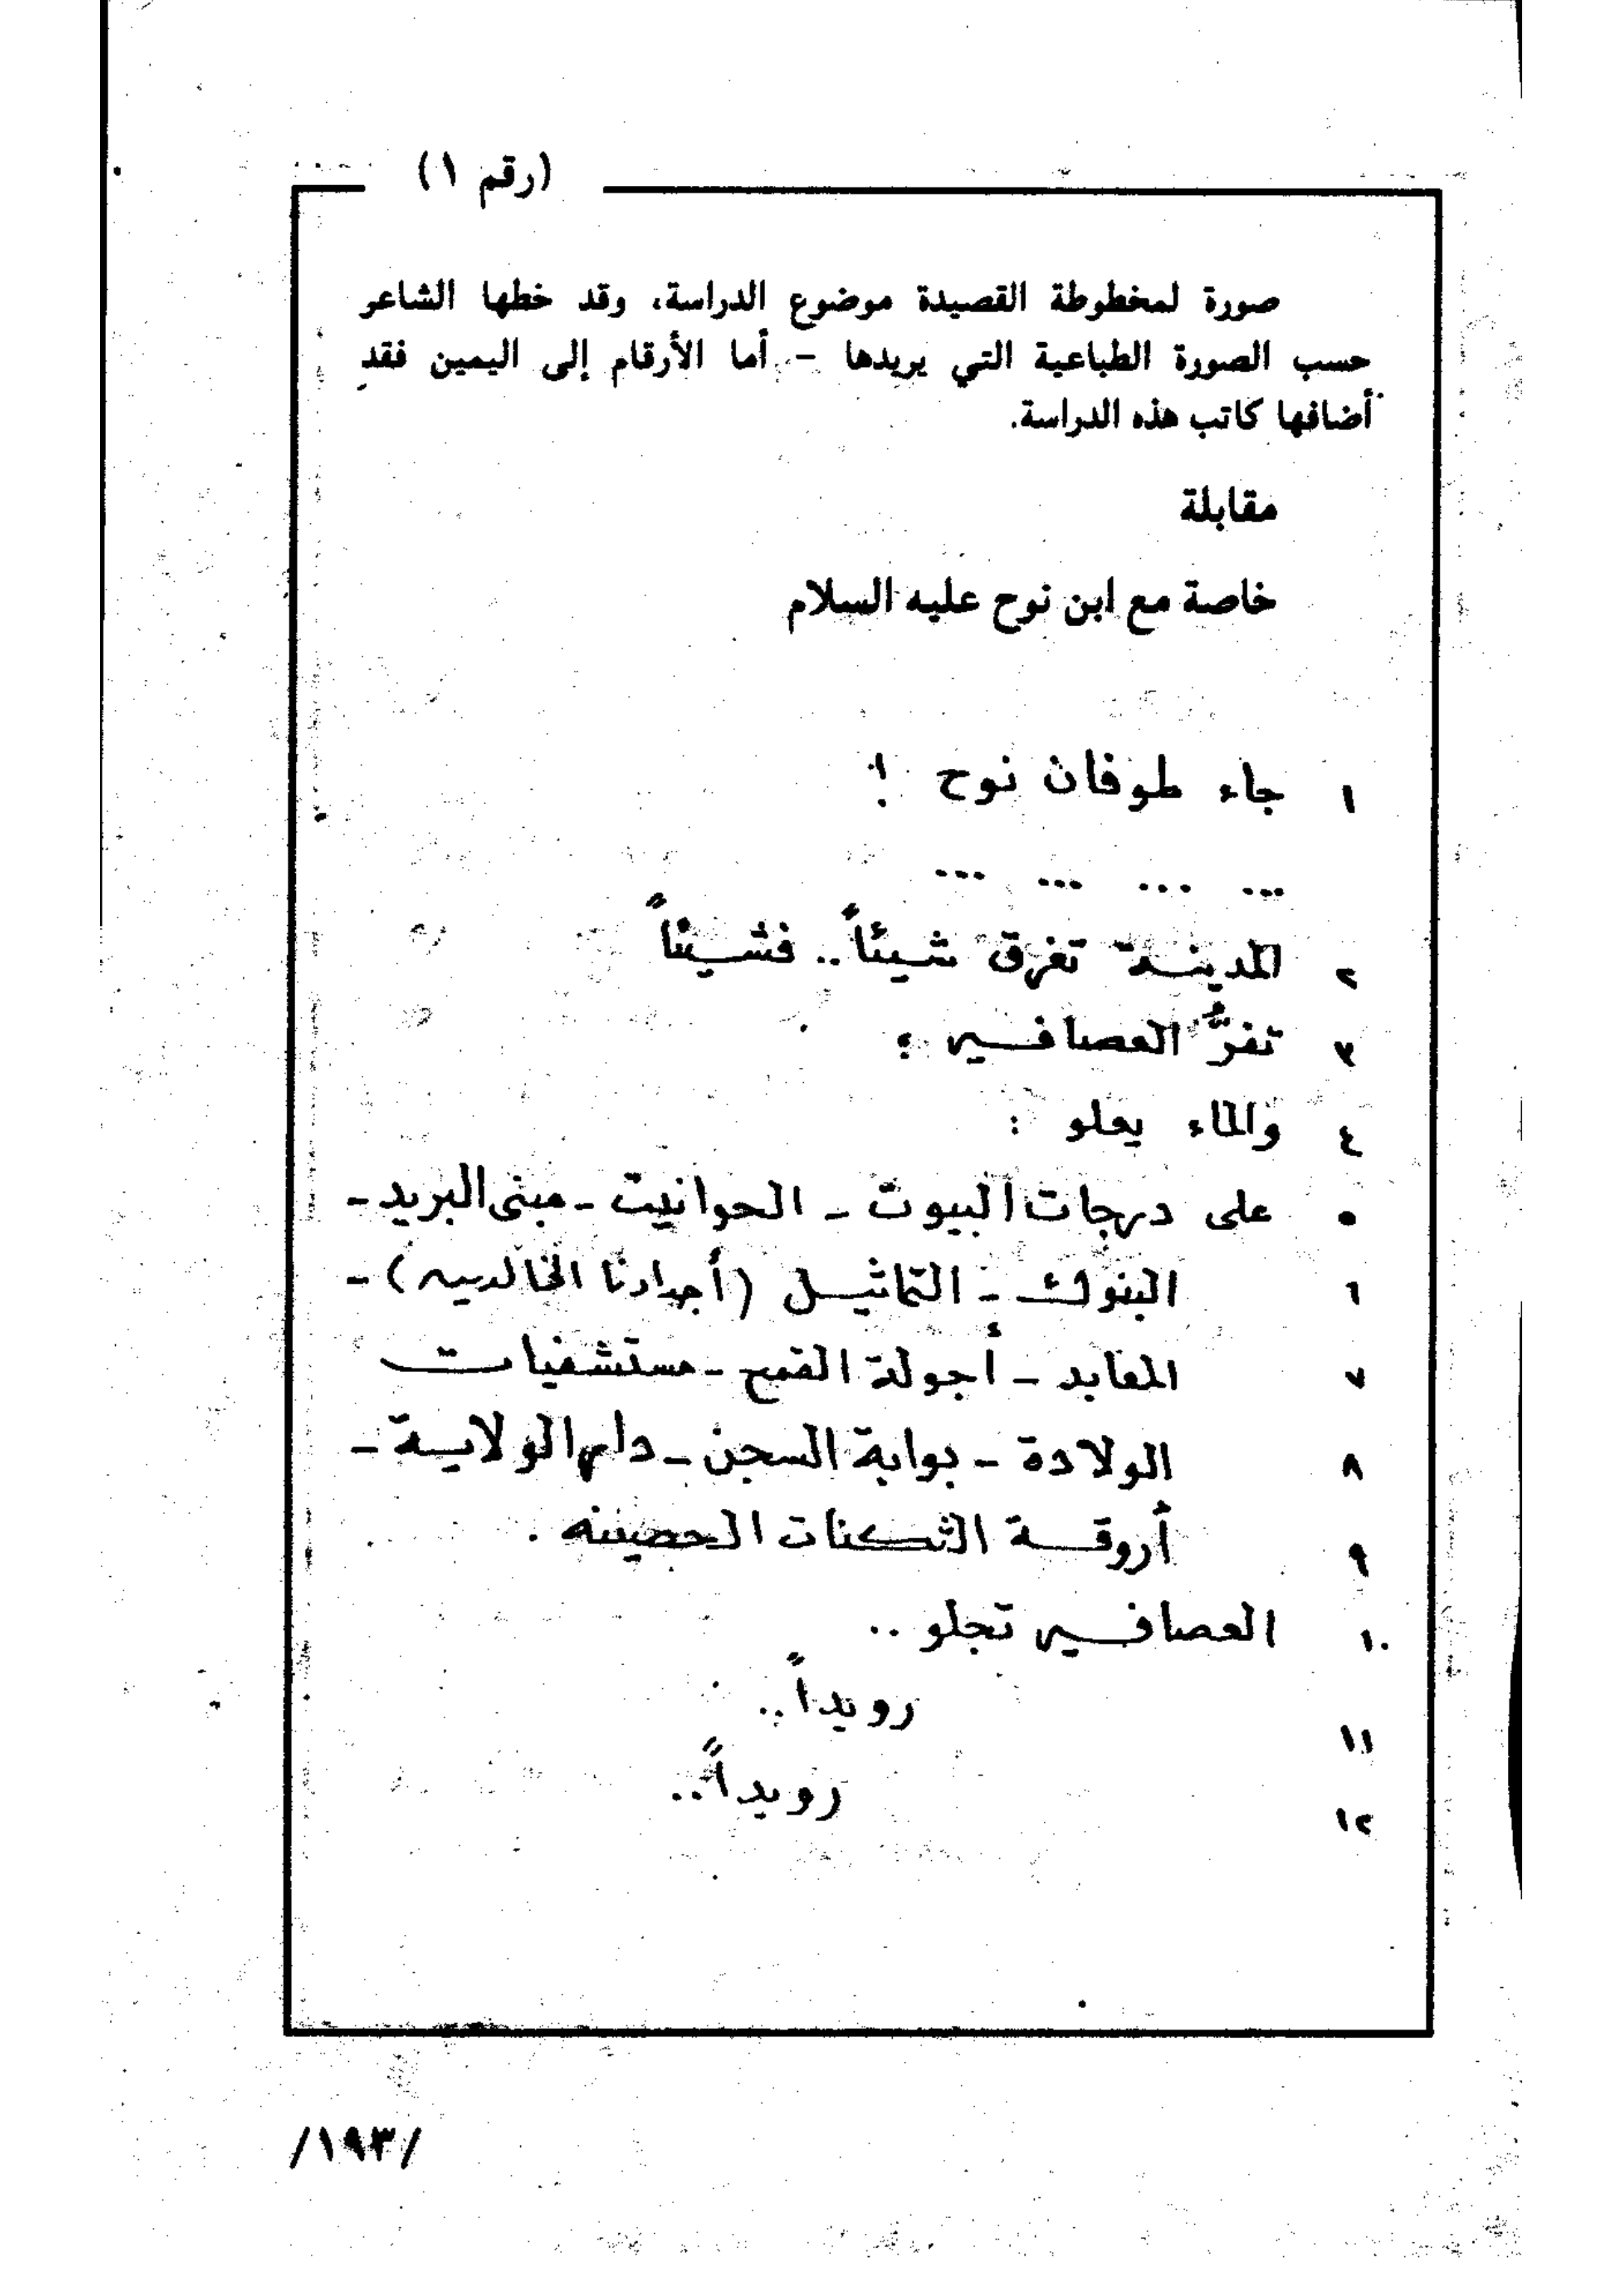 (رقم ١)
صورة لمخطوطة القصيدة موضوع الدراسة، وقد خطها الشاعر
حسب الصورة الطباعية التي يريدها - أما الأرقام إلى اليمين فقد
أضافها كاتب هذه الدراسة.
مقابلة
خاصة مع ابن نوح عليه السلام
١ جاء طوفان نوح !
... ... ... ...
٢ المدينة تغرق شيئاً .. فشيئاً
٣ تفرُّ العصافير ؛
٤ والماء يعلو :
٥ على درجات البيوت - الحوانيت - مبنى البريد -
٦ البنوك - التماثيل (أجدادنا الخالدين) -
٧ المعابد - أجولة القمح - مستشفيات
٨ الولادة - بوابة السجن - دار الولاية -
٩ أروقة الثكنات الحصينه .
١٠ العصافير تجلو ..
١١ رويداً ..
١٢ رويداً ..
/١٩٣/